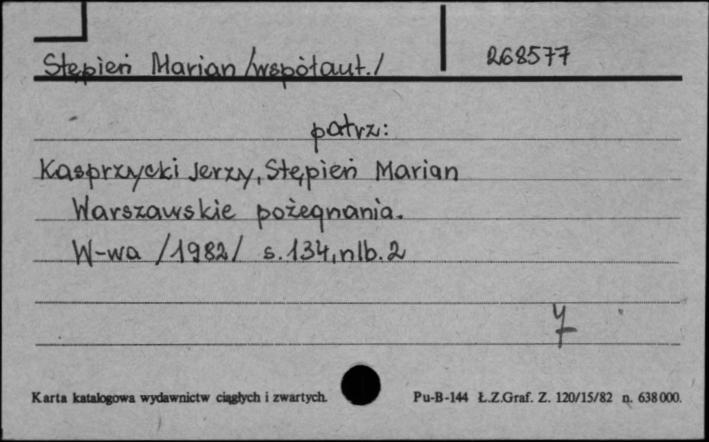 Stępień Marian /współaut./ 268577
patrz:
Kasprzycki Jerzy, Stępień Marian
Warszawskie pożegnania.
W-wa /1982/ s.134, nlb.2
Karta katalogowa wydawnictw ciągłych i zwartych. Pu-B-144 Ł.Z.Graf. Z. 120/15/82 n. 638000.